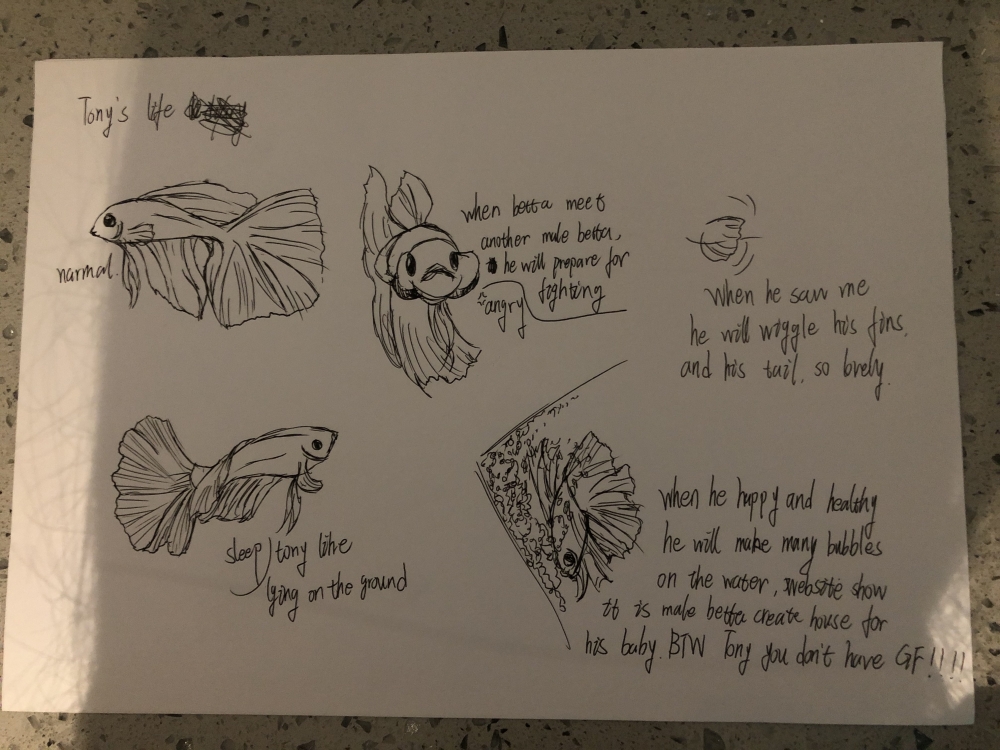 Tony's life
normal.
when betta meet
another male betta,
he will prepare for
fighting
angry
When he saw me
he will wiggle his fins,
and his tail, so lovely.
sleep) tony like
lying on the ground
when he happy and healthy
he will make many bubbles
on the water, website show
it is male betta create house for
his baby. BTW Tony you don't have GF!!!!